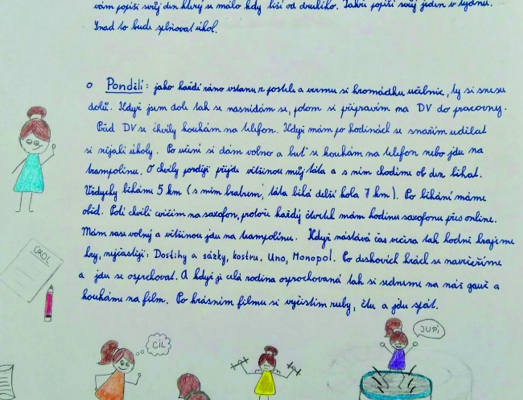 vám popíši svůj den který se málo kdy liší od druhého. Takže popíši svůj jeden v týdnu.
Snad to bude splňovat úkol.
Pondělí: jako každé ráno vstanu z postele a vezmu si hromádku učebnic, ty si snesu
dolů. Když jsem dole tak se nasnídám se, potom si připravím na DV do pracovny.
Před DV se chvíly koukám na telefon. Když mám po hodinách se snažím udělat
si nějaké úkoly. Po učení si dám volno a buť se koukám na telefon nebo jdu na
trampolínu. O chvíly později přijde většinou můj táta a s ním chodíme ob den běhat.
Vždycky běhám 5 km (s mím bratrem, táta běhá delší kola 7 km). Po běhání máme
oběd. Poté chvíli cvičím na saxofon, protože každý čtvrtek mám hodinu saxofonu přes online.
Mám zase volný a většinou jdu na trampolínu. Když nastává čas večera tak hodně hrajeme
hry, nejčastěji: Dostihy a sázky, kostru, Uno, Monopol. Po deskových hrách se navečeříme
a jdu se osprchovat. A když je celá rodina osprchovaná tak si sedneme na náš gauč a
koukáme na film. Po krásném filmu si vyčistím zuby, čtu a jdu spát.
ÚKOL
CÍL
JUPÍ